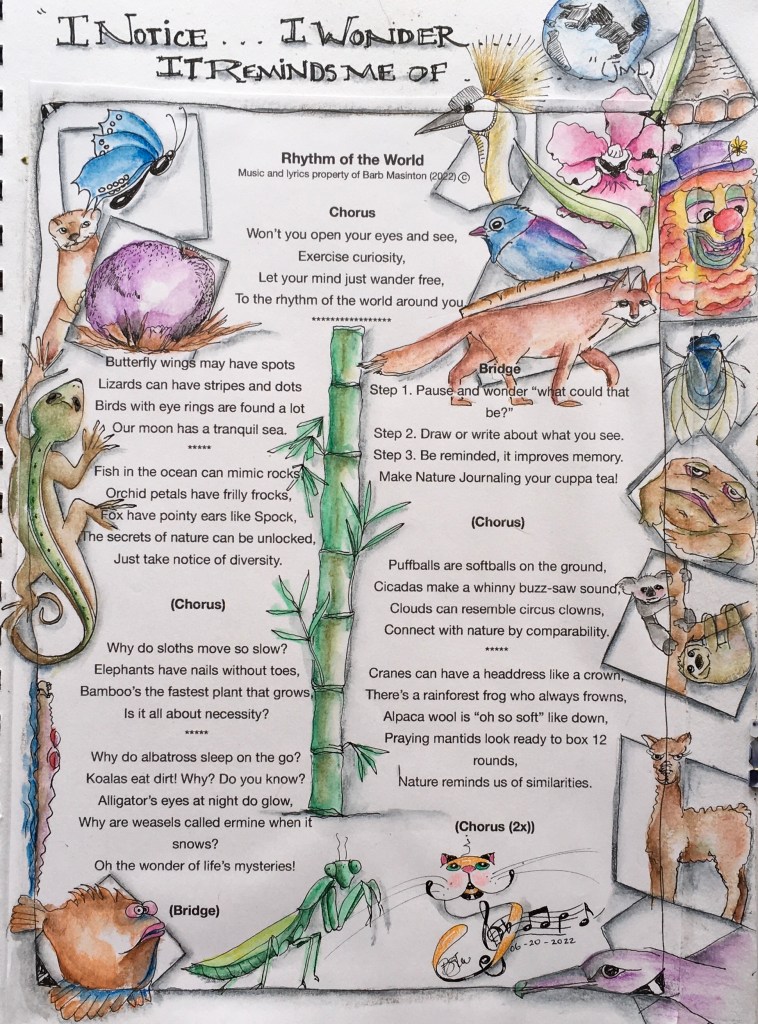 "I NOTICE ... I WONDER
IT REMINDS ME OF ........ (JML)
Rhythm of the World
Music and lyrics property of Barb Masinton (2022) ©
Chorus
Won't you open your eyes and see,
Exercise curiosity,
Let your mind just wander free,
To the rhythm of the world around you
*****************
Butterfly wings may have spots
Lizards can have stripes and dots
Birds with eye rings are found a lot
Our moon has a tranquil sea.
*****
Fish in the ocean can mimic rocks,
Orchid petals have frilly frocks,
Fox have pointy ears like Spock,
The secrets of nature can be unlocked,
Just take notice of diversity.
(Chorus)
Why do sloths move so slow?
Elephants have nails without toes,
Bamboo's the fastest plant that grows,
Is it all about necessity?
*****
Why do albatross sleep on the go?
Koalas eat dirt! Why? Do you know?
Alligator's eyes at night do glow,
Why are weasels called ermine when it
snows?
Oh the wonder of life's mysteries!
(Bridge)
Bridge
Step 1. Pause and wonder "what could that
be?"
Step 2. Draw or write about what you see.
Step 3. Be reminded, it improves memory.
Make Nature Journaling your cuppa tea!
(Chorus)
Puffballs are softballs on the ground,
Cicadas make a whinny buzz-saw sound,
Clouds can resemble circus clowns,
Connect with nature by comparability.
*****
Cranes can have a headdress like a crown,
There's a rainforest frog who always frowns,
Alpaca wool is "oh so soft" like down,
Praying mantids look ready to box 12
rounds,
Nature reminds us of similarities.
(Chorus (2x))
06-20-2022